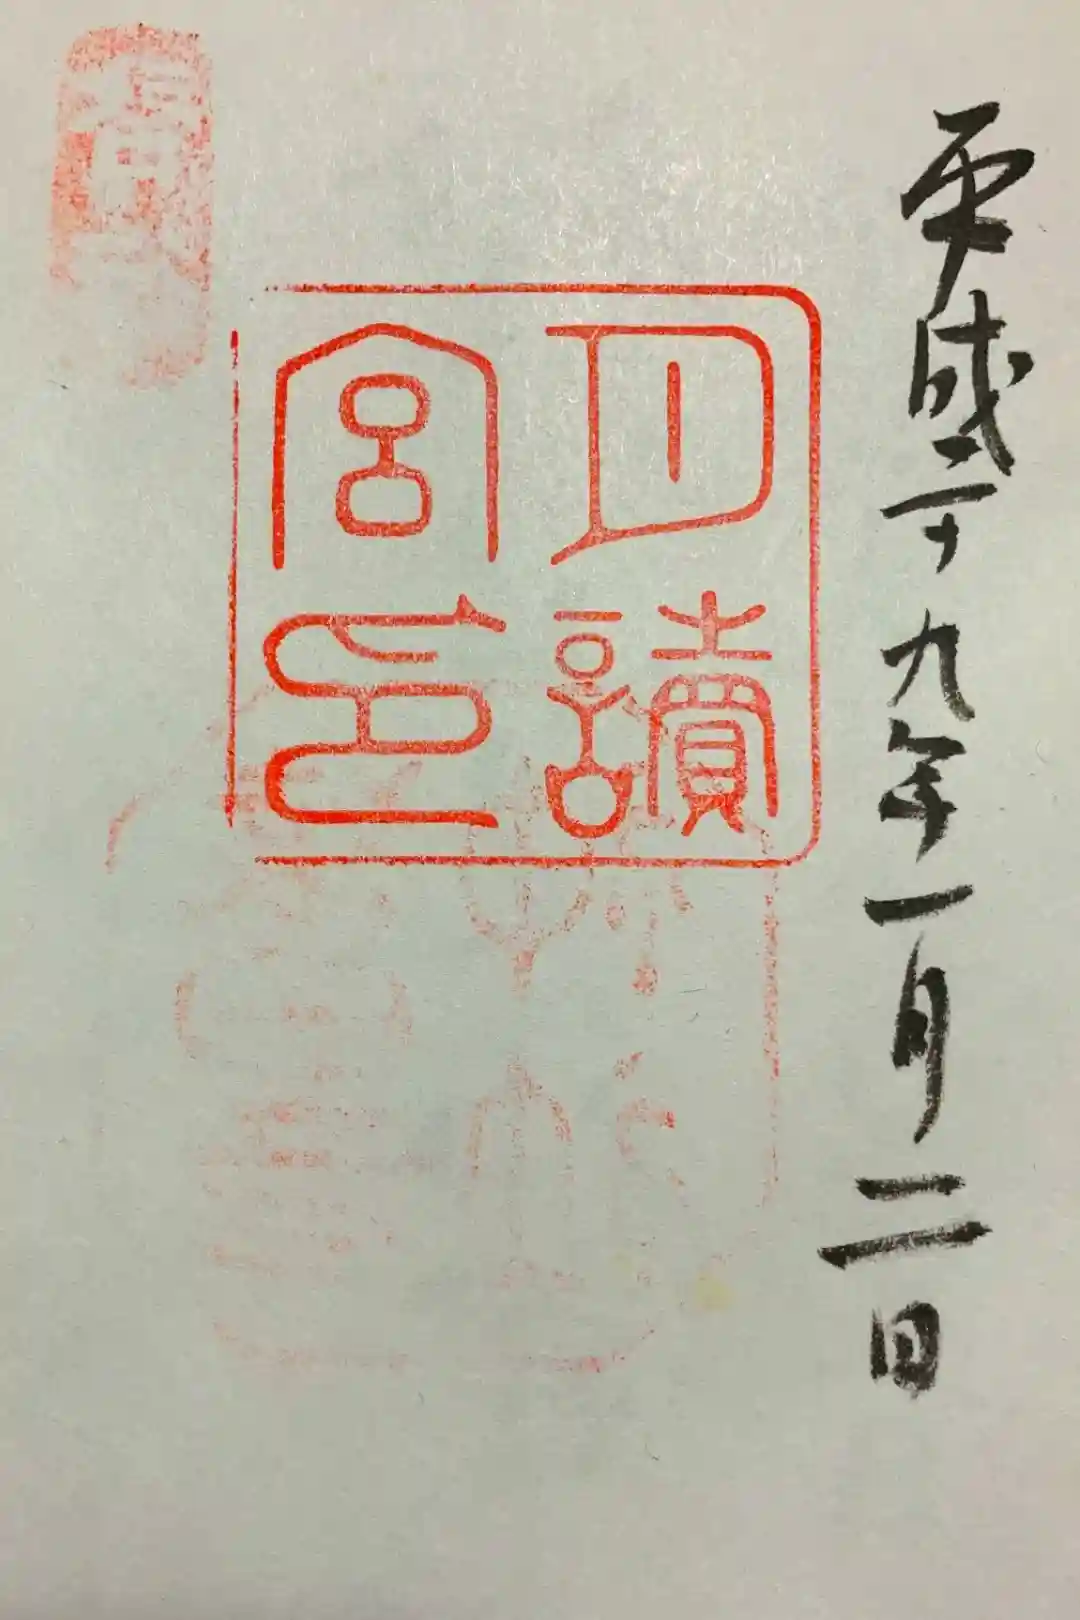 平成二十九年一月二日
月讀
宮印